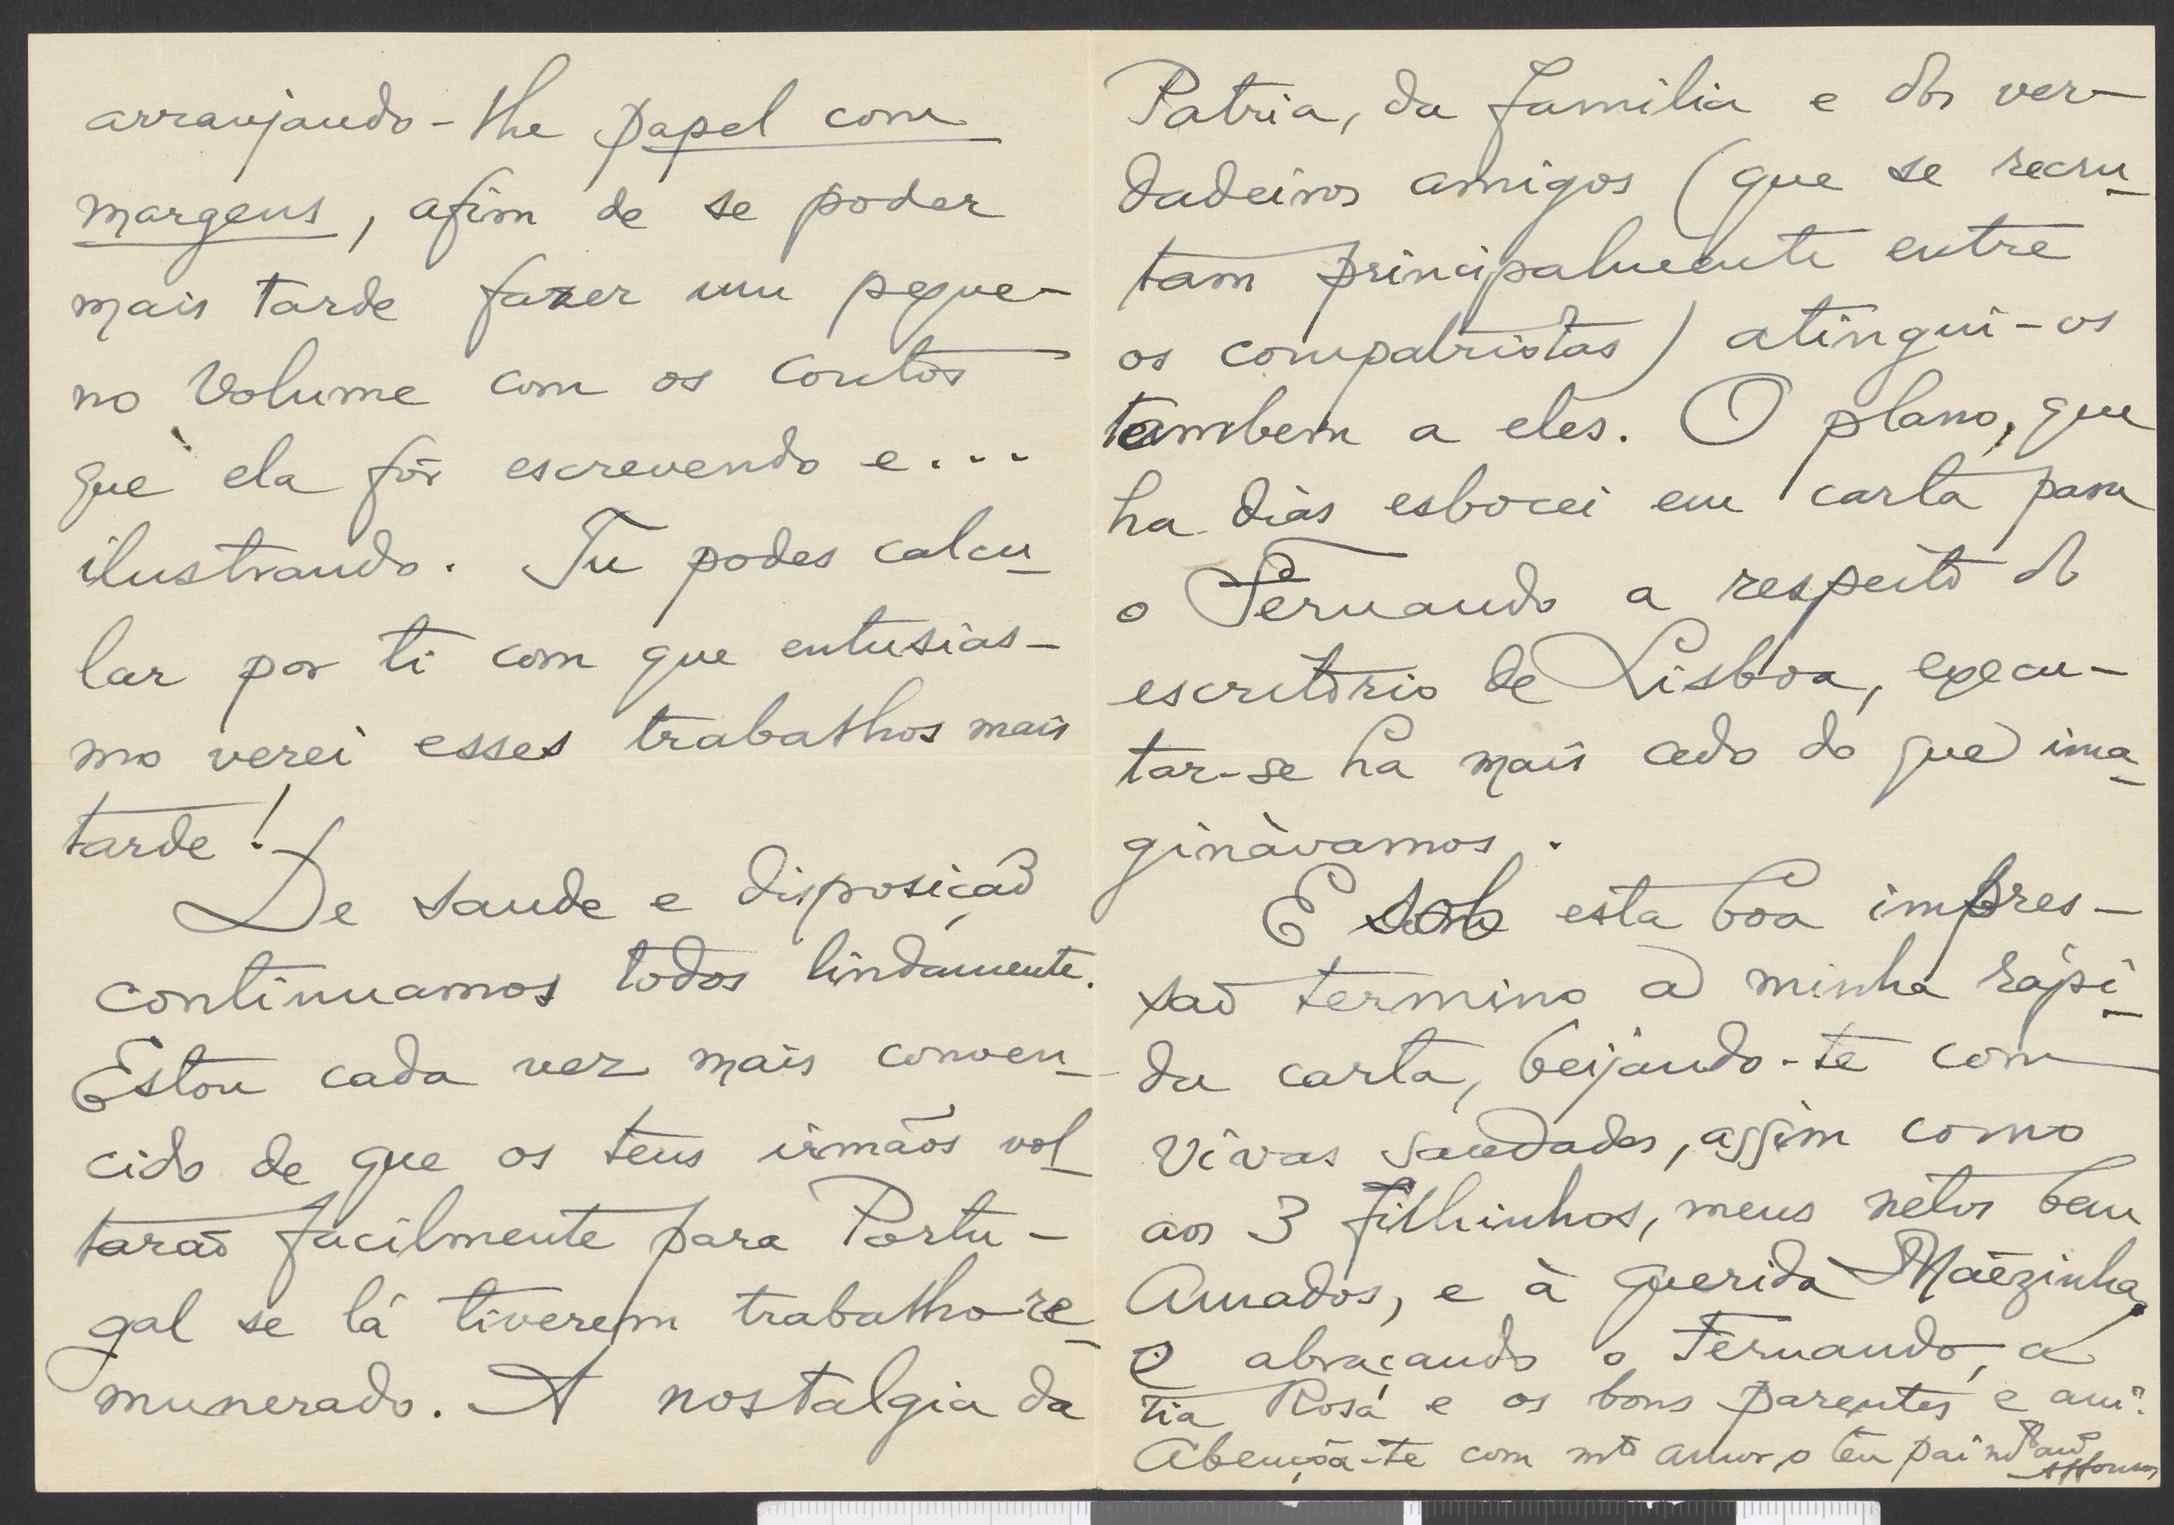 arranjando-lhe papel com
margens, afim de se poder
mais tarde fazer um peque-
no volume com os contos
que ela fôr escrevendo e...
ilustrando. Tu podes calcu-
lar por ti com que entusias-
mo verei esses trabalhos mais
tarde!
De saude e disposição
continuamos todos lindamente.
Estou cada vez mais conven-
cido de que os teus irmãos vol-
tarão facilmente para Portu-
gal se lá tiverem trabalho re-
munerado. A nostalgia da
Patria, da familia e dos ver-
dadeiros amigos (que se recru-
tam principalmente entre
os compatriotas) atingui-os
tambem a eles. O plano, que
ha dias esbocei em carta para
o Fernando a respeito do
escritório de Lisboa, execu-
tar-se ha mais cedo do que ima-
ginàvamos.
E sob esta boa impres-
são termino a minha rápi-
da carta, beijando-te com
vivas saudades, assim como
aos 3 filhinhos, meus netos bem
amados, e à querida Mãezinha,
e abraçando o Fernando, a
tia Rosa e os bons parentes e am.
Abençôa-te com mto amor, o teu pai mto
Affonso